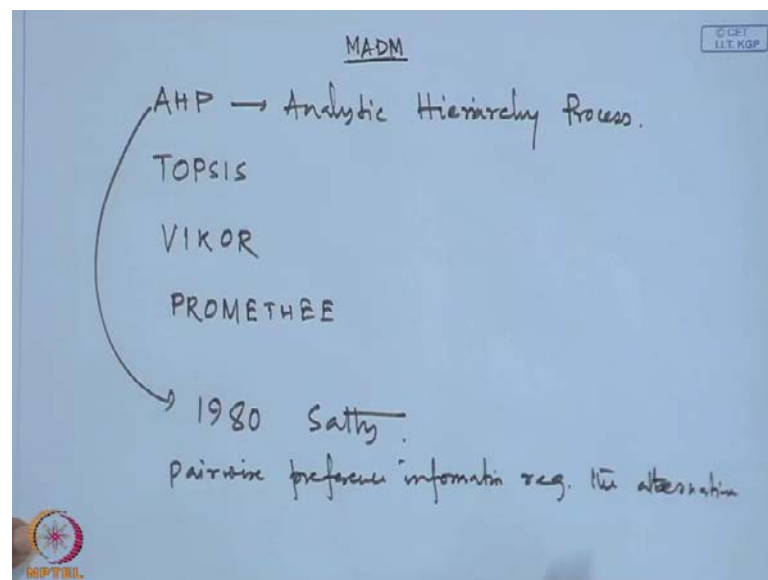 MADM
© CET
I.I.T. KGP
AHP → Analytic Hierarchy Process.
TOPSIS
VIKOR
PROMETHEE
1980 Satty.
Pairwise preference information reg. the alternative
NPTEL